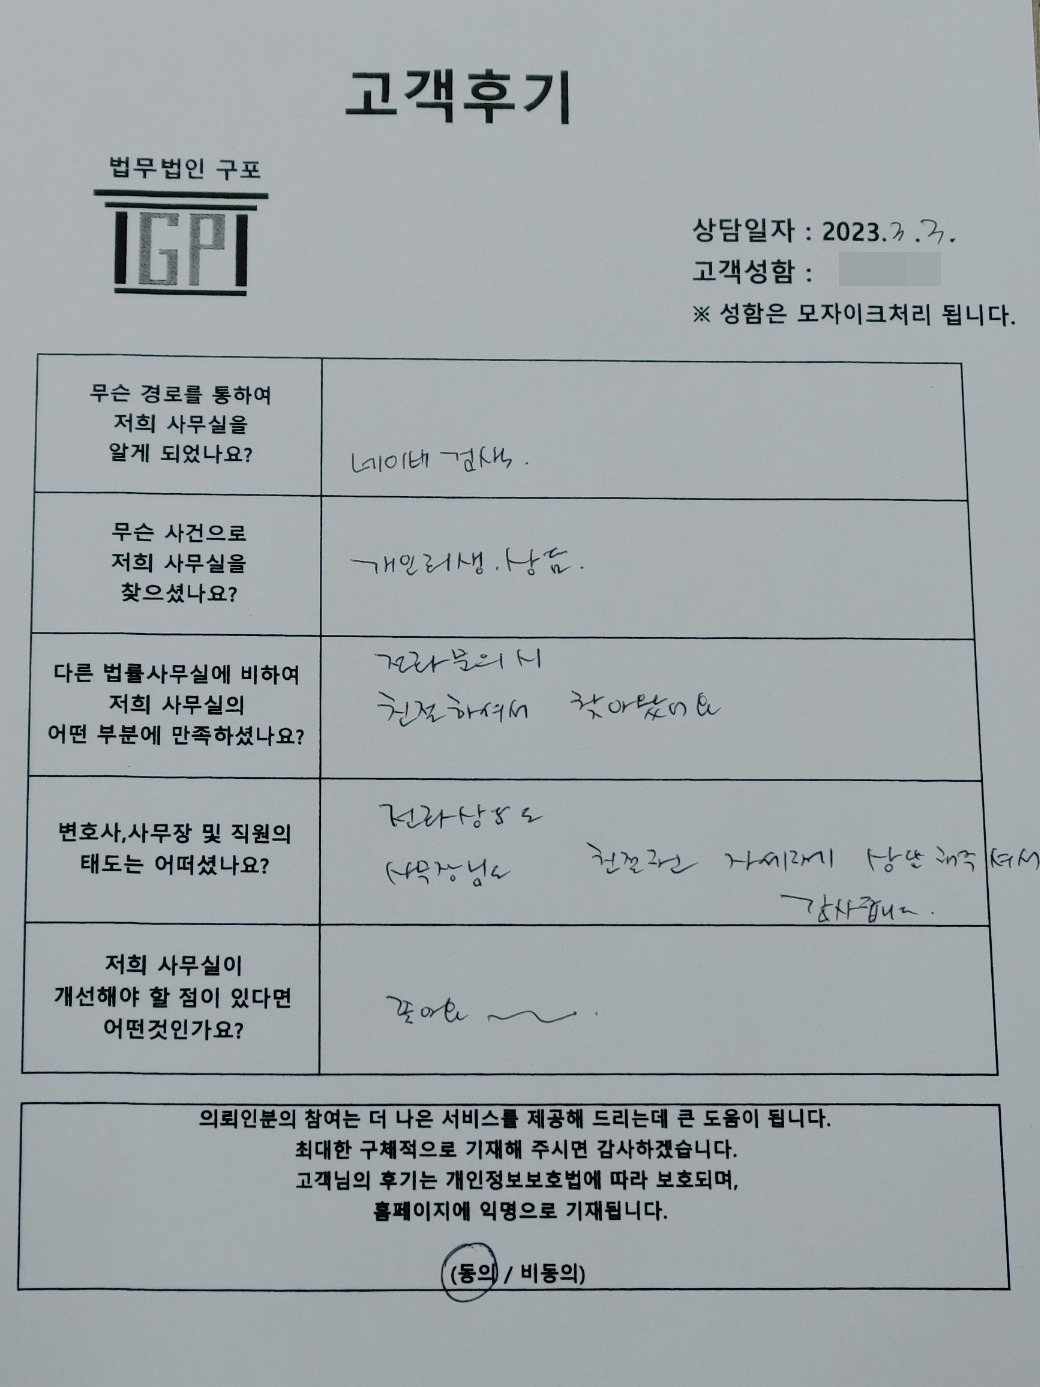 고객후기
법무법인 구포
GP
상담일자 : 2023.3.3.
고객성함 :
※ 성함은 모자이크처리 됩니다.
무슨 경로를 통하여
저희 사무실을
알게 되었나요?
네이버 검색.
무슨 사건으로
저희 사무실을
찾으셨나요?
개인회생.상담.
다른 법률사무실에 비하여
저희 사무실의
어떤 부분에 만족하셨나요?
전화문의 시
친절하셔서 찾아왔어요
변호사,사무장 및 직원의
태도는 어떠셨나요?
전화상으로
사무장님도 친절한 자세하게 상담해주셔서
감사합니다.
저희 사무실이
개선해야 할 점이 있다면
어떤것인가요?
좋아요
의뢰인분의 참여는 더 나은 서비스를 제공해 드리는데 큰 도움이 됩니다.
최대한 구체적으로 기재해 주시면 감사하겠습니다.
고객님의 후기는 개인정보보호법에 따라 보호되며,
홈페이지에 익명으로 기재됩니다.
(동의 / 비동의)